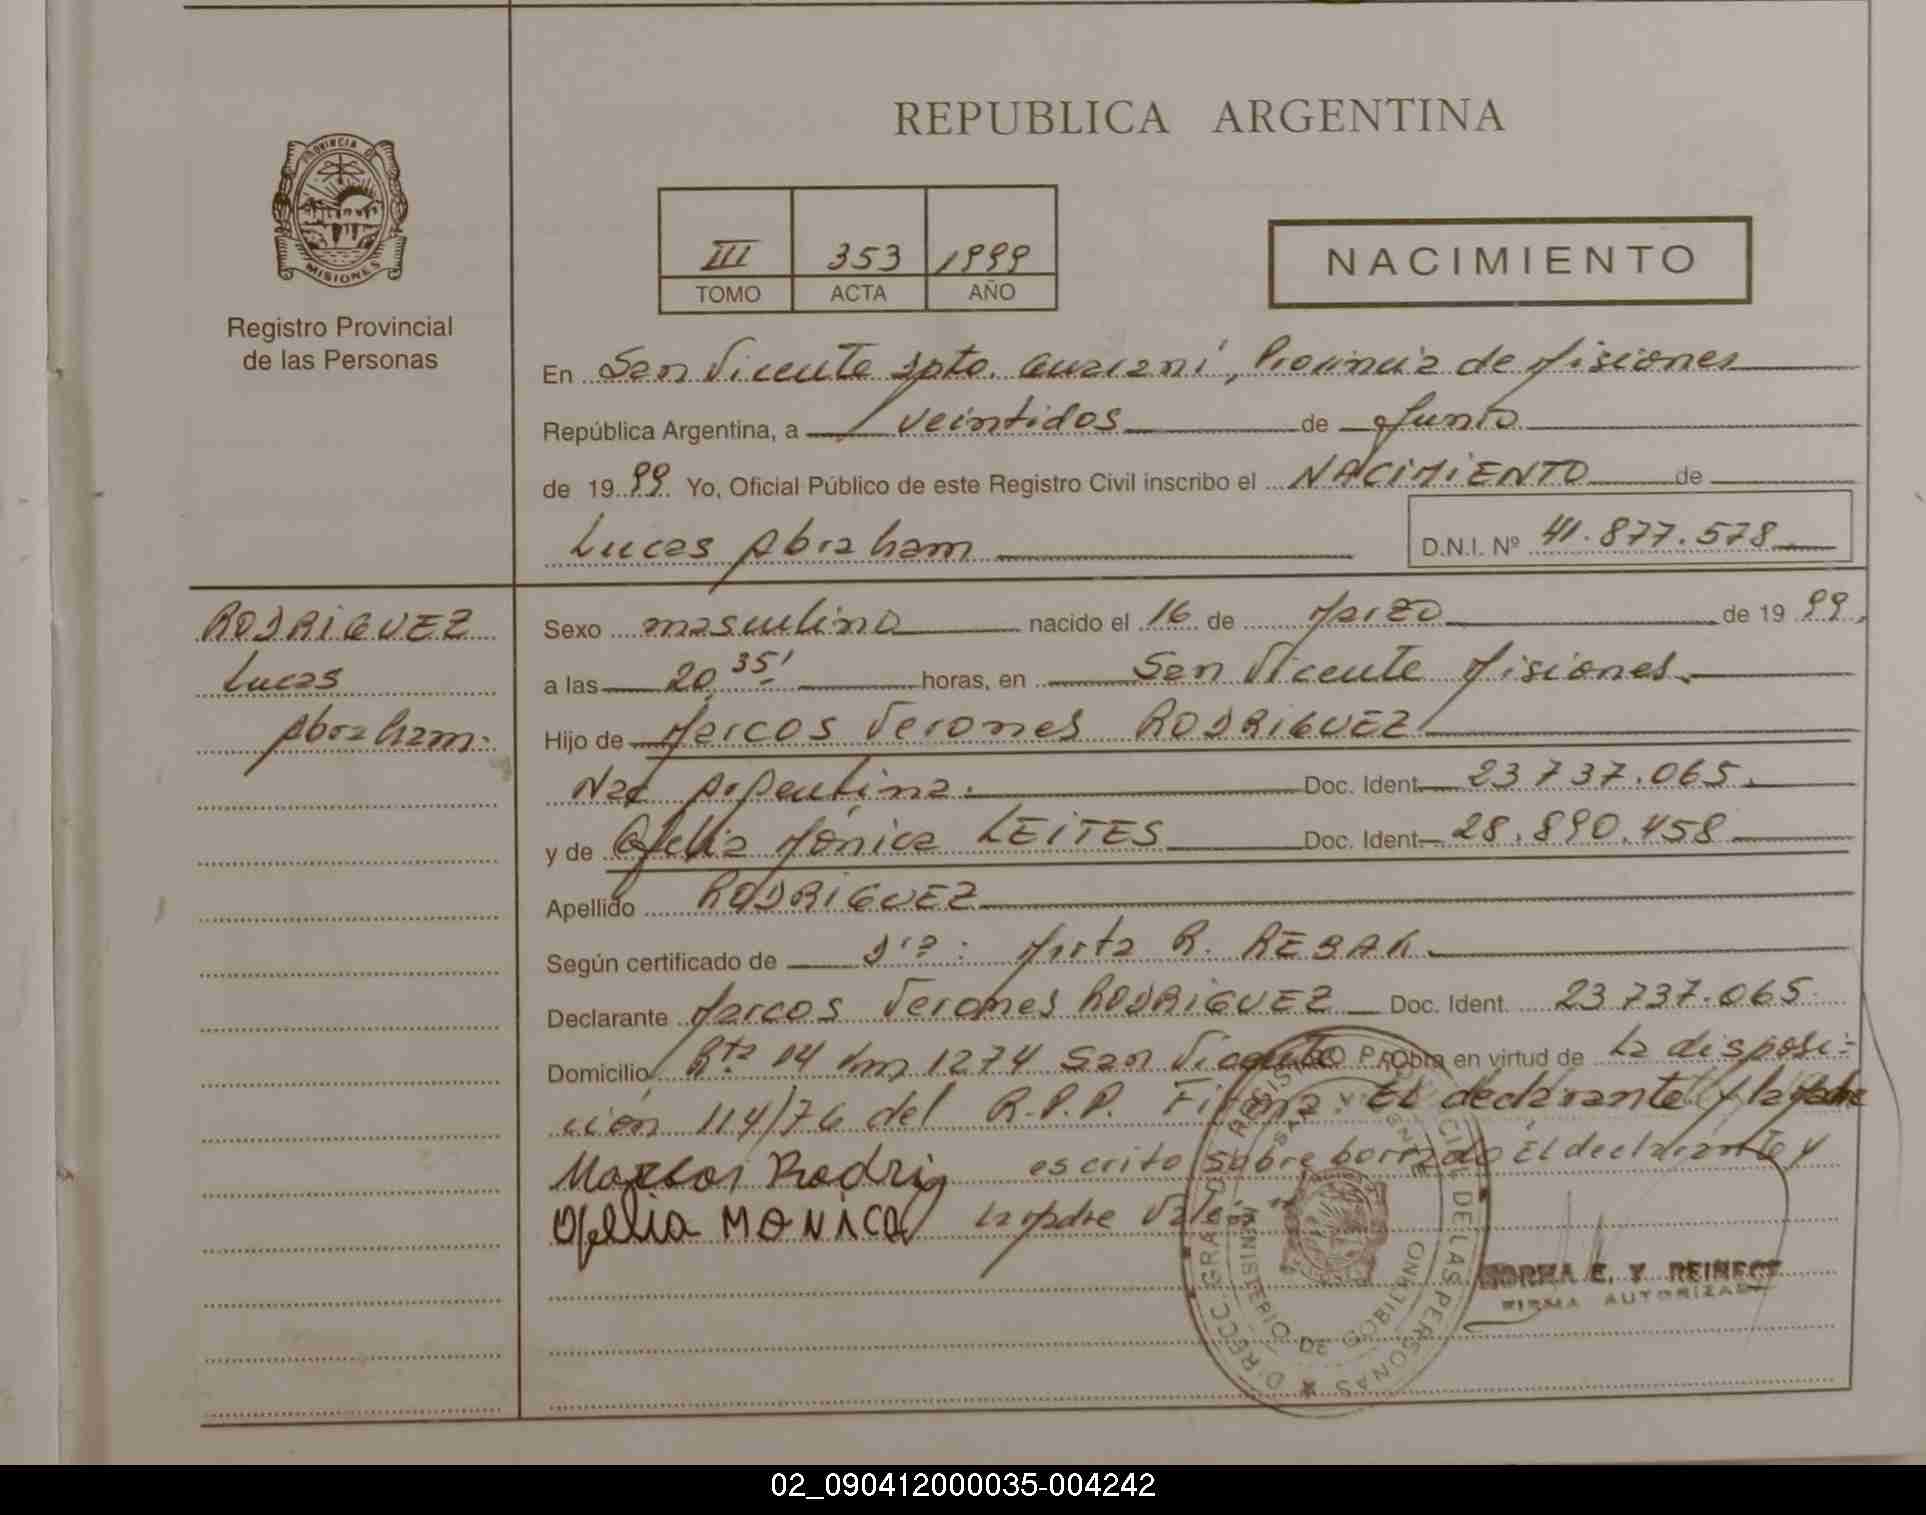 REPUBLICA ARGENTINA
PROVINCIA DE
MISIONES
Registro Provincial
de las Personas
III 353 1999
TOMO ACTA AÑO
NACIMIENTO
En San Vicente Dpto. Guaraní, Provincia de Misiones
República Argentina, a veintidos de Junio
de 1999. Yo, Oficial Público de este Registro Civil inscribo el NACIMIENTO de
Lucas Abraham D.N.I. Nº 41.877.578
RODRIGUEZ
Lucas
Abraham.
Sexo masculino nacido el 16 de Marzo de 1999.
a las 20,35' horas, en San Vicente Misiones.
Hijo de Marcos Verones RODRIGUEZ
Nac Argentina. Doc. Ident 23 737.065.
y de Ofelia Mónica LEITES Doc. Ident 28.890.458
Apellido RODRIGUEZ
Según certificado de Dra: Mirta R. REBAK
Declarante Marcos Verones RODRIGUEZ Doc. Ident. 23 737.065
Domicilio Rta 14 km 1274 San Vicente Obra en virtud de la disposi-
ción 114/76 del R.P.P. Firma: El declarante y la madre
Marcos Rodrig escrito sobre borrado El declarante y
Ofelia MONICA la madre Vale
NORMA E. Y. REINECK
FIRMA AUTORIZADA
DIRECC GRAL DE REGISTRO PROV CIAL DE LAS PERSONAS
MINISTERIO DE GOBIERNO
SAN VICENTE
02_090412000035-004242